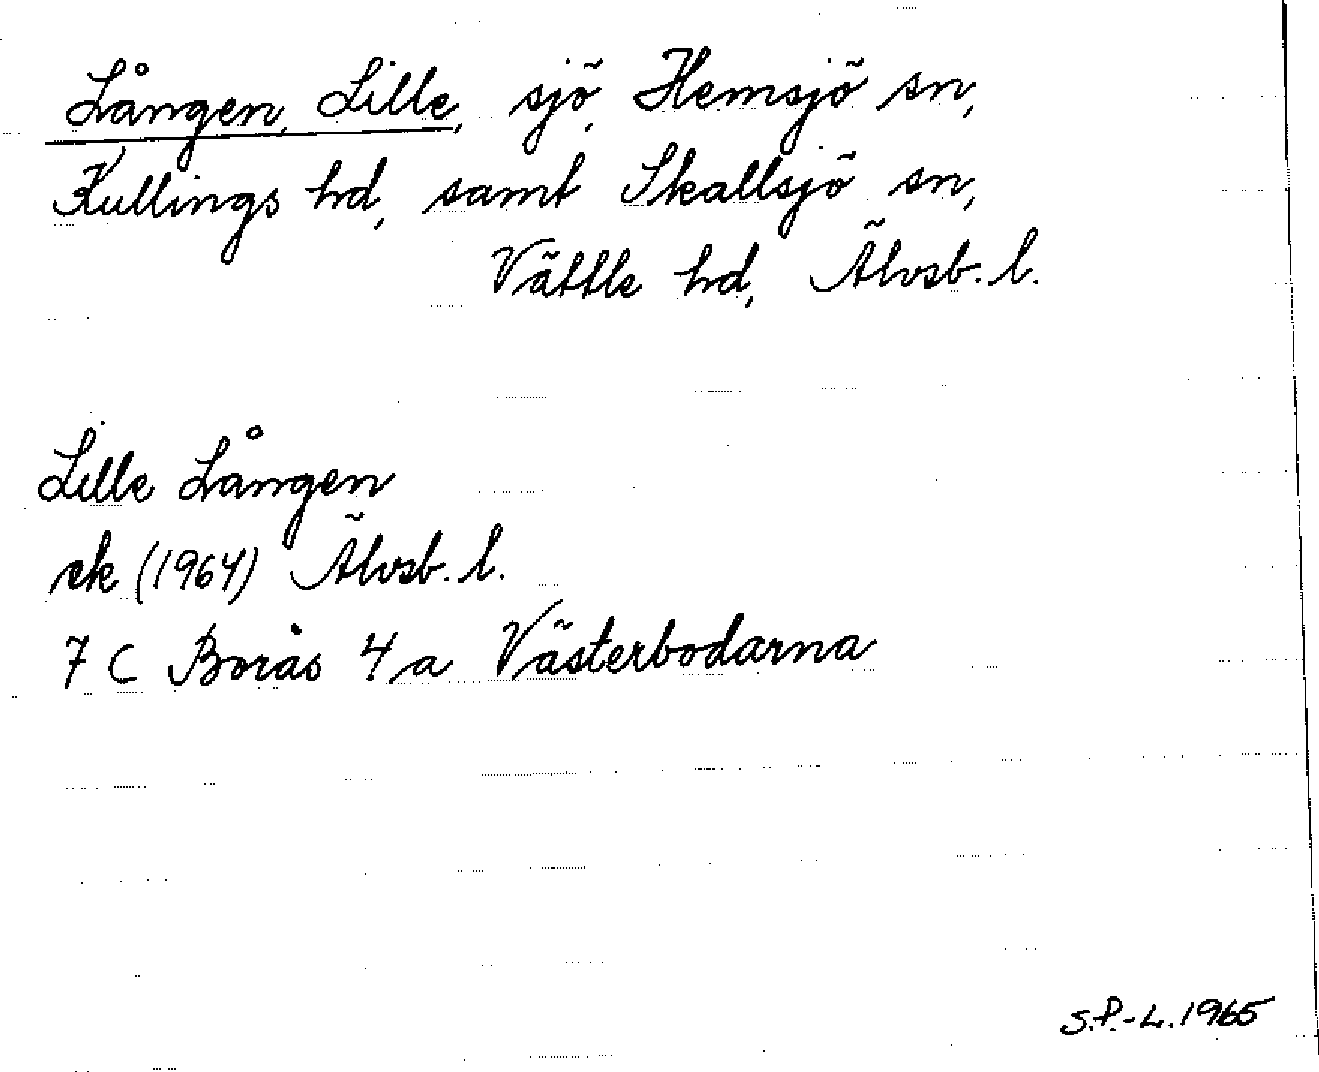 Lången, Lille, sjö, Hemsjö sn,
Kullings hd, samt Skallsjö sn,
Vättle hd, Älvsb. l.
Lille Lången
ek (1964) Älvsb. l.
7 C Borås 4 a Västerbodarna
S.P.-L. 1965